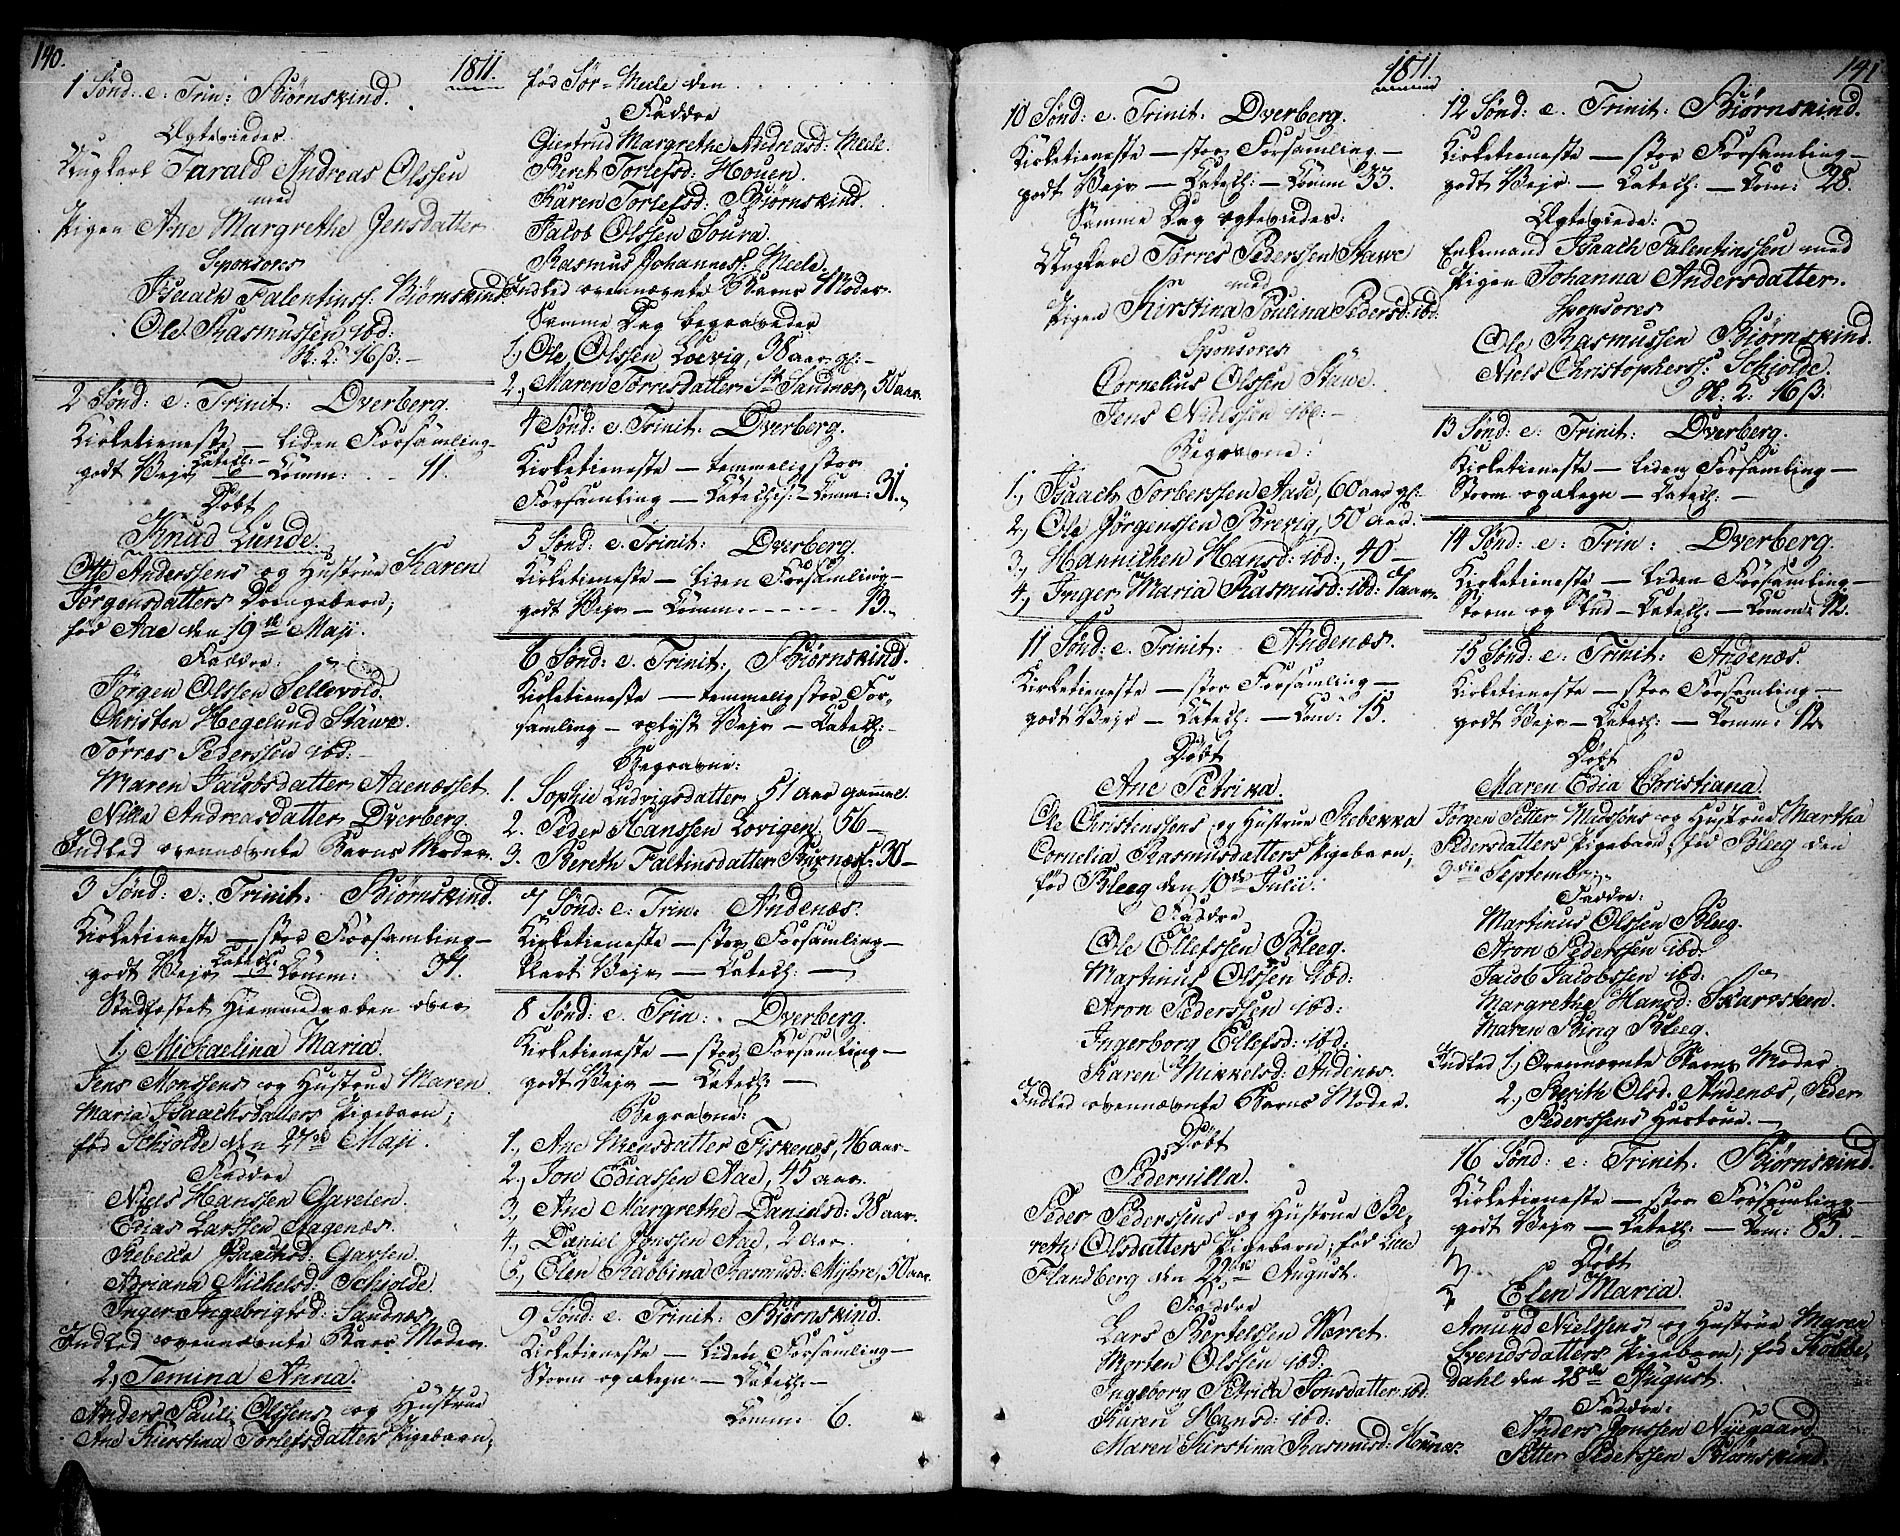 140.
1811.
1 Sønd: e: Trin: Biørnskind.
Ægteviedes
Ungkarl Tarald Andreas Olssen
med
Pigen Ane Margrethe Jensdatter
Sponsores
Isaach Falentinss: Biørnskind
Ole Rasmussen ibd:
16 ß: –
2 Sønd: e: Trinit: Dverberg.
Kirketieneste – liden Forsamling –
godt Vejr – Catech: – Comm: 11.
Døbt
Knud Lunde
Otte Anderssens og Hustrue Karen
Jörgensdatters Drengebarn;
fød Aae den 19de Maji.
Faddre:
Jörgen Olssen Sellevold.
Christen Hegelund Stawe.
Törres Pederssen ibd: –
Maren Jacobsdatter Aaenæsset.
Nilla Andreasdatter Dverberg.
Indled ovennævnte Barns Moder.
3 Sønd: e: Trinit: Biørnskind.
Kirketieneste – stor Forsamling –
godt Vejr – Catech: – Comm: 37.
Stadfæstet Hiemmedaaben over
1, Michaelina Maria.
Jens Monssens og Hustrue Maren
Maria Isaachsdatters Pigebarn;
fød Schiolde den 27de Maji.
Faddre
Niels Hanssen Gavelen.
Edias Larssen Aagenæs.
Rebecka Isaachsd: Gavlen.
Adriana Michelsd: Schiolde.
Inger Ingebrigtsd: Sandnæs
Indled ovennævnte Barns Moder.
2, Temina Anna.
Anders Pauli Olssens og Hustrue
Ane Kierstina Torlefsdatters Pigebarn;
fød Sör-Meele den . . . .
Faddre
Giertrud Margrethe Andreasd: Meele.
Beret Torlefsd: Houen.
Karen Torlefsd: Biørnskind.
Jacob Olssen Soura.
Rasmus Johanness: Meele.
Indled ovennævnte Barns Moder.
Samme Dag begravedes
1, Ole Olssen Loevig, 38 aar gl: –
2, Maren Torresdatter Sandnæs, 50 aar.
4 Sønd: e: Trinit: Dverberg.
Kirketieneste – temmelig stor
Forsamling – Catech: – Comm: 31.
5 Sønd: e: Trinit: Dverberg.
Kirketieneste – liden Forsamling –
godt Vejr – Comm: . . . . 13.
6 Sønd: e: Trinit: Biørnskind.
Kirketieneste – temmelig stor For-
samling – Vejr – Catech: –
Begravne:
1. Sophie Ludvigsdatter, 51 aar gammel.
2. Peder Hanssen Lovigen, 56 –
3. Bereth Faltinsdatter Buxnæs: 30 –
7 Sønd: e: Trin: Andenæs.
Kirketieneste – stor Forsamling –
Vejr – Catech: –
8 Sønd: e: Trin: Dverberg.
Kirketieneste – stor Forsamling –
godt Vejr – Catech –
Begravne:
1, Ane Monsdatter Fiskenæs, 46 aar –
2, Jon Ediassen Aae, 45 aar.
3, Ane Margrethe Danielsd: 38 aar.
4, Daniel Jonssen Aae, 2 aar.
5, Elen Rabbina Rasmusd: Myhre, 50 aar.
9 Sønd: e: Trinit: Biørnskind.
Kirketieneste – liden Forsamling –
Storm – Catech: –
Comm: 6.
1811.
141
10 Sønd: e: Trinit: Dverberg.
Kirketieneste – stor Forsamling –
godt Vejr – Catech: – Comm 33.
Samme Dag ægteviedes:
Ungkarl Törres Pederssen Stawe
med
Pigen Kirstina Poulina Pedersd: ibd:
Sponsores
Cornelius Olssen Stawe.
Jens Nielssen ibd: –
Begravne:
1, Isaach Torberssen Aase, 60 aar gl:
2, Ole Jörgenssen Brevig, 50 aar.
3, Hannichen Hansd: ibd:, 40 –
4, Inger Maria Rasmusd: ibd: 1 aar.
11 Sønd: e: Trinit: Andenæs.
Kirketieneste – stor Forsamling –
godt Vejr – Catech: – Com: 15.
Døbt
Ane Petrika.
Ole Christenssens og Hustrue Rebekka
Cornelia Rasmusdatters Pigebarn;
fød Bleeg den 10de Julii.
Faddre
Ole Ellefssen Bleeg.
Martinus Olssen ibd:
Aron Pederssen ibd:
Ingerborg Ellefsd: ibd:
Karen Mikkelsd: Andenæs.
Indled ovennævnte Barns Moder.
Døbt
Pedernilla.
Peder Pederssens og Hustrue Be-
reth Olsdatters Pigebarn, fød Lille
Flandberg den 22de August.
Faddre
Lars Bertelssen Værret.
Morten Olssen ibd:
Ingeborg Petrica Jonsdatter ibd:
Karen Hansd: ibd:
Maren Kirstina Rasmusd:
12 Sønd: e: Trinit: Biørnskind.
Kirketieneste – stor Forsamling –
godt Vejr – Catech: – Com: 28.
Ægteviede:
Enkemand Isaach Falentinssen med
Pigen Johanna Andersdatter.
Sponsores
Ole Rasmussen Biørnskind.
Niels Christophers: Schiolde.
16 ß.
13 Sønd: e: Trinit: Dverberg.
Kirketieneste – liden Forsamling –
Storm og Regn – Catech: –
14 Sønd: e: Trin: Dverberg.
Kirketieneste – liden Forsamling –
Storm og Slud – Catech: – Comm: 12.
15 Sønd: e: Trinit: Andenæs.
Kirketieneste – stor Forsamling –
godt Vejr – Catech: – Comm: 12.
Døbt
Maren Edia Christiana.
Jørgen Petter og Hustrue Martha
Pedersdatters Pigebarn, fød Bleeg den
3die Septembr:
Faddre:
Martinus Olssen Bleeg.
Aron Pederssen ibd:
Jacob Jacobssen ibd:
Margrethe Hansd: Skarvsteen.
Maren Bing Bleeg.
Indled 1, Ovennævnte Barns Moder
2, Berith Olsd. Andenæs, Peder
Pederssens Hustrue. –
16 Sønd: e: Trinit: Biørnskind.
Kirketieneste – stor Forsamling –
godt Vejr – Catech: – Com: 85. –
Døbt
Elen Maria.
Amund Nielssens og Hustrue Maren
Svendsdatters Pigebarn, fød Kobbe-
dahl den 28de August.
Faddre:
Anders Jonssen Nyegaard.
Petter Pederssen Biørnskind.